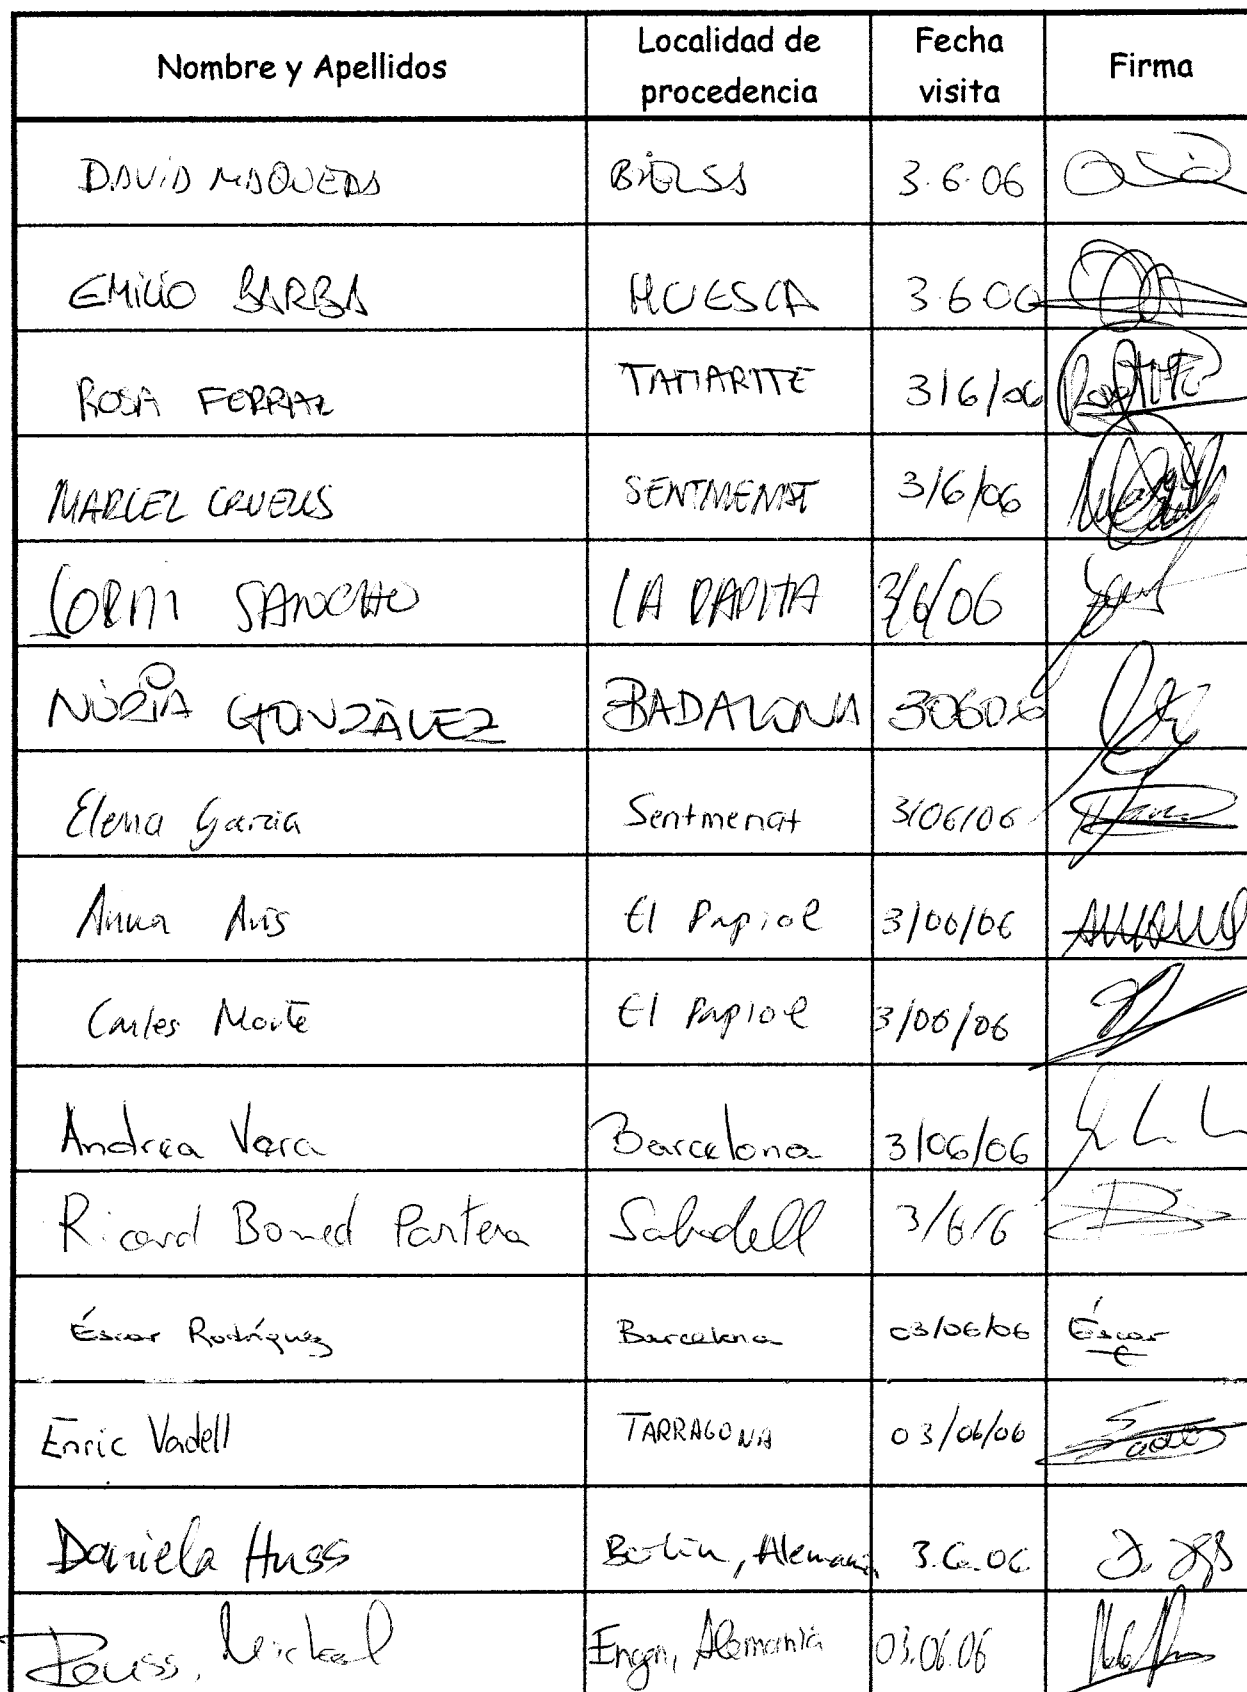 Nombre y Apellidos Localidad de procedencia Fecha visita Firma
DAVID MAQUEDA BIELSA 3.6.06
EMILIO BARBA HUESCA 3.6.06
ROSA FERRAZ TAMARITE 3/6/06
MARCEL CRUELLS SENTMENAT 3/6/06
JORDI SANCHO LA RAPITA 3/6/06
NÚRIA GONZÀLEZ BADALONA 30606
Elena Garcia Sentmenat 3/06/06
Anna Aris El Papiol 3/06/06
Carles Morte El Papiol 3/06/06
Andrea Vera Barcelona 3/06/06
Ricard Boned Pantera Sabadell 3/6/6
Éscar Rodríguez Barcelona 03/06/06 Éscar
Enric Vadell TARRAGONA 03/06/06
Daniela Huss Berlin, Alemania 3.6.06
Michael Engen, Alemania 03.06.06